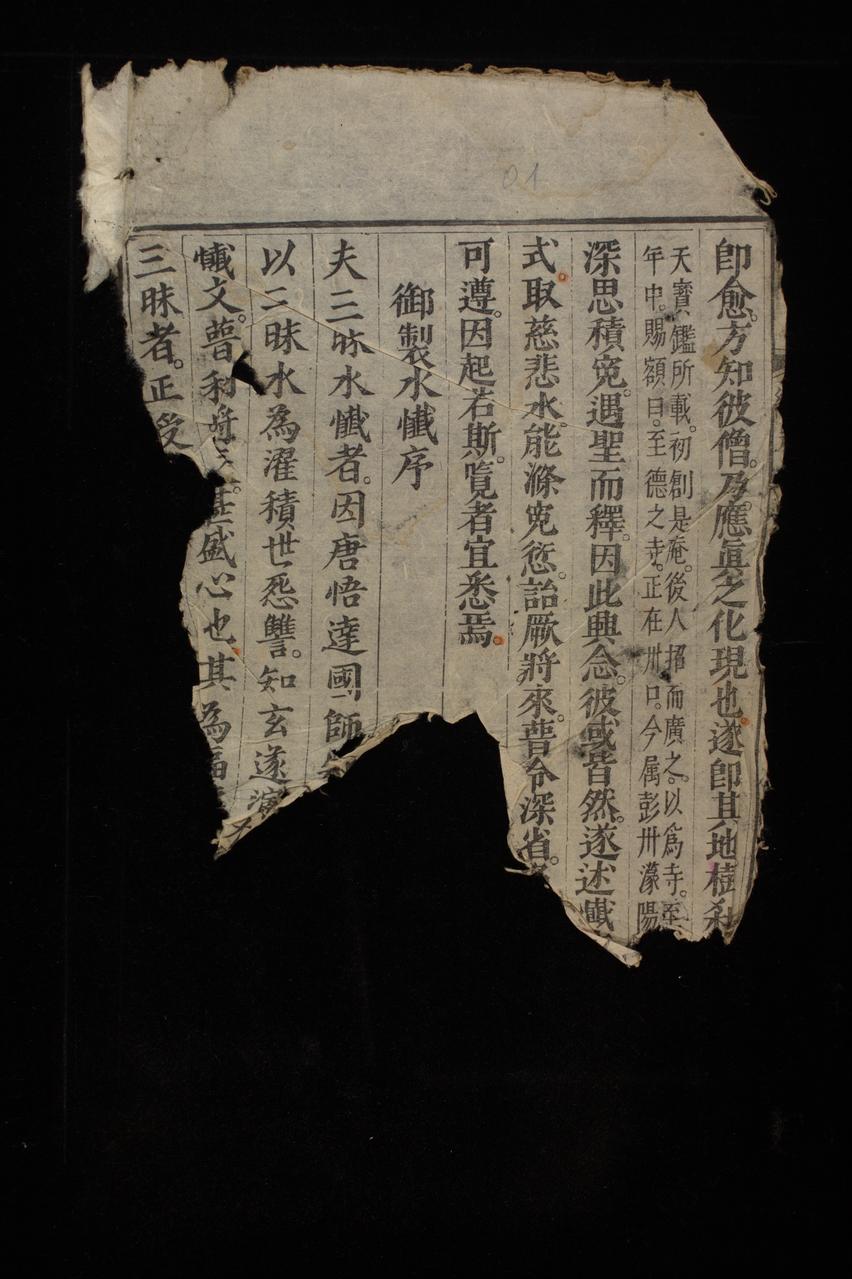 01
即愈。方知彼僧。乃應眞之化現也遂即其地植刹
天寶鑑所載。初創是庵。後人招而廣之。以爲寺。至
年中。賜額曰。至德之寺。正在卅口。今属彭卅濛陽
深思積寃。遇聖而釋。因此興念。彼或皆然。遂述懴
式取慈悲水。能滌寃愆。詒厥將來。普令深省。
可遵。因起若斯。覽者宜悉焉
御製水懺序
夫三昧水懺者。因唐悟達國師
以三昧水為濯積世怨讐。知玄遂演
懺文。普利將來。甚盛心也其為福
三昧者。正受